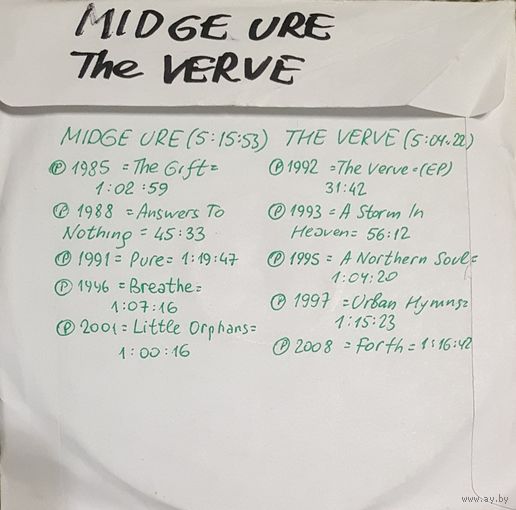 MIDGE URE
The VERVE
MIDGE URE (5:15:53)
Ⓟ 1985 = The Gift =
1:02:59
Ⓟ 1988 = Answers To
Nothing = 45:33
Ⓟ 1991 = Pure = 1:19:47
Ⓟ 1996 = Breathe =
1:07:16
Ⓟ 2001 = Little Orphans =
1:00:16
THE VERVE (5:04:22)
Ⓟ 1992 = The Verve = (EP)
31:42
Ⓟ 1993 = A Storm In
Heaven = 56:12
Ⓟ 1995 = A Northern Soul =
1:04:20
Ⓟ 1997 = Urban Hymns =
1:15:23
Ⓟ 2008 = Forth = 1:16:42
www.ay.by